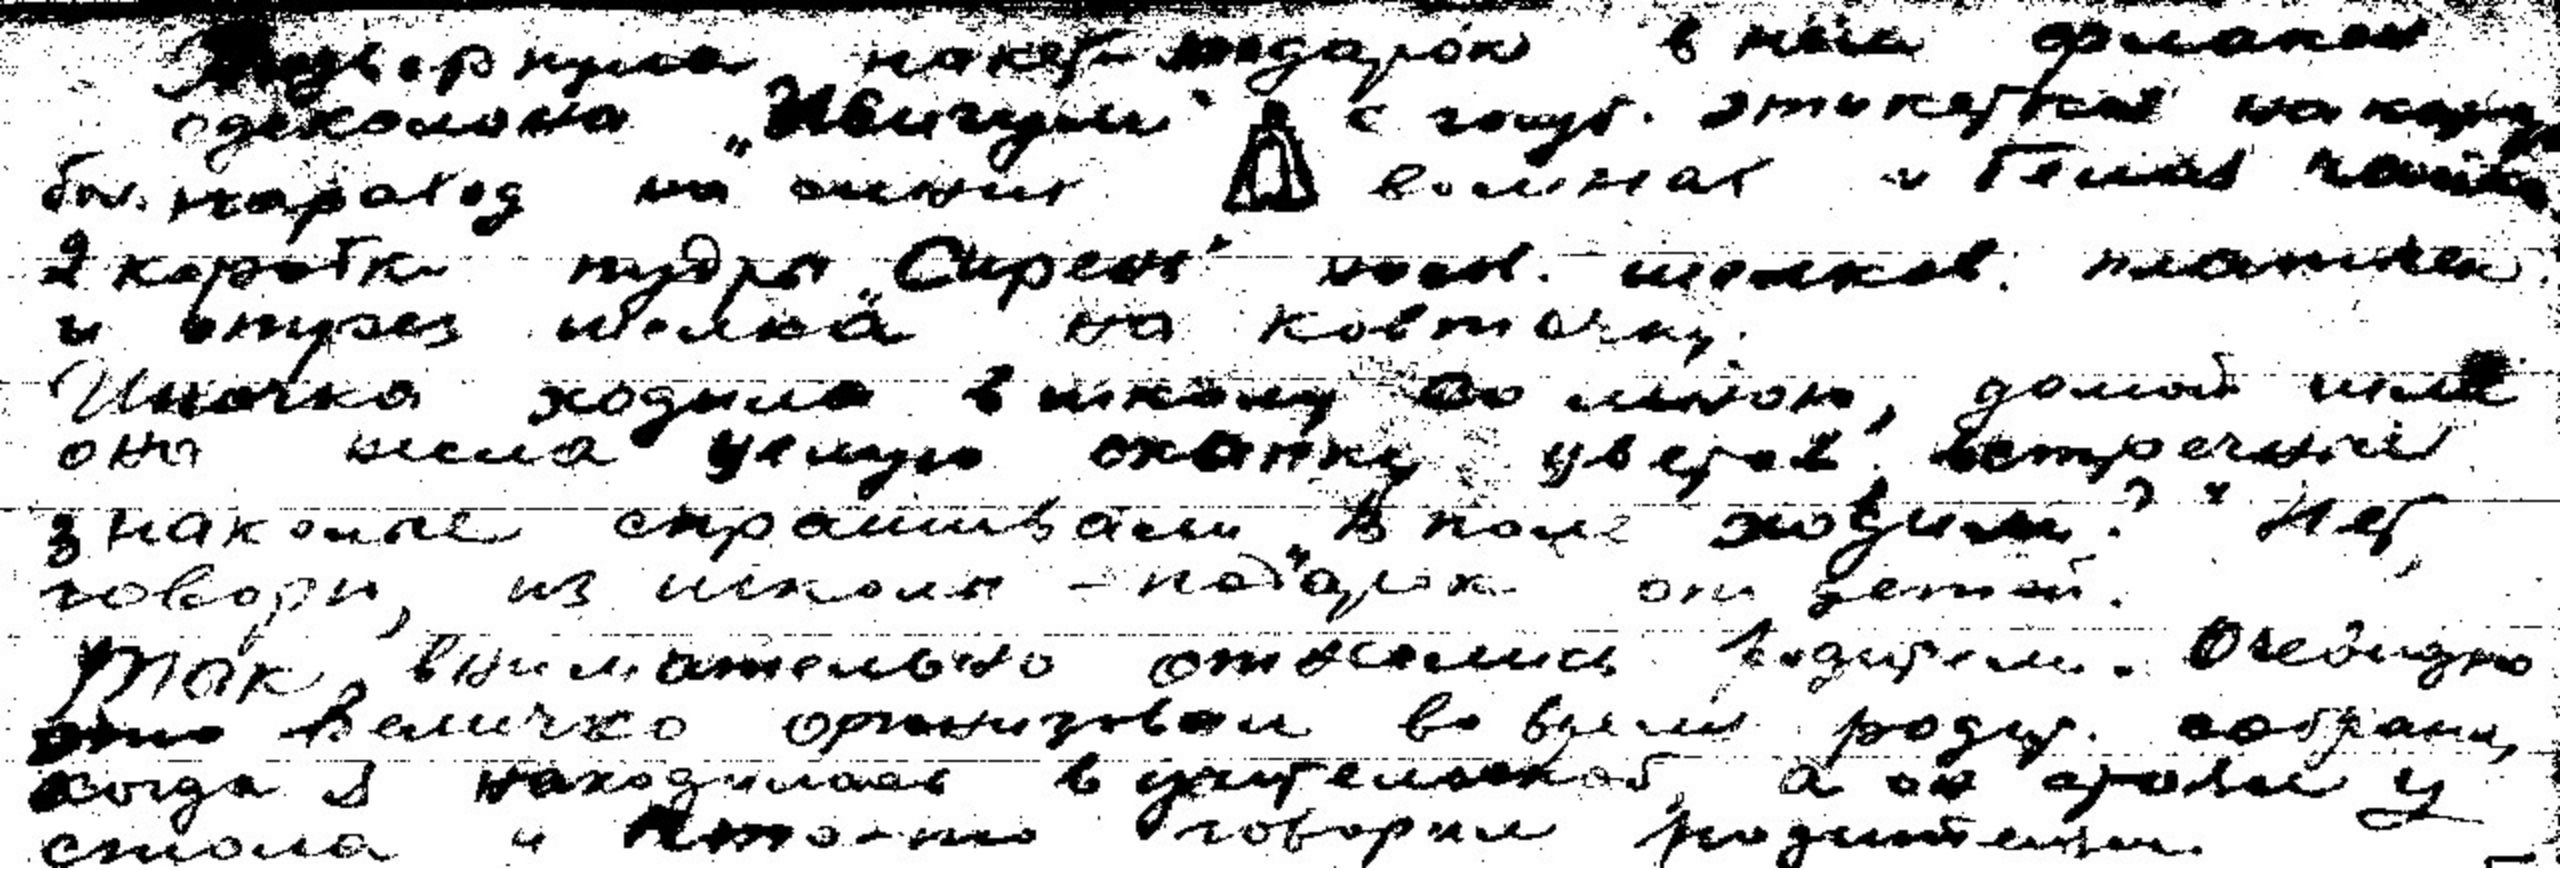 Подвернула пакет-подарок в нём флакон
одеколона „Жигули" с голуб. этикеткой на кору
бол. пароход на синих волнах и белая чайка
2 коробки пудры „Сирень" нос. шелков. платочек
и отрез шелка на кофточку.
Иночка ходила в школу со мною, домой шла
она несла целую охапку цветов, встречные
знакомые спрашивали „В поле ходили?" Нет,
говорю, из школы - подарок от детей.
Так внимательно отнеслись родители. Очевидно
это Величко организовал во время родит. собрания,
когда я находилась в учительской, а он стоял у
стола и что-то говорил родителям.